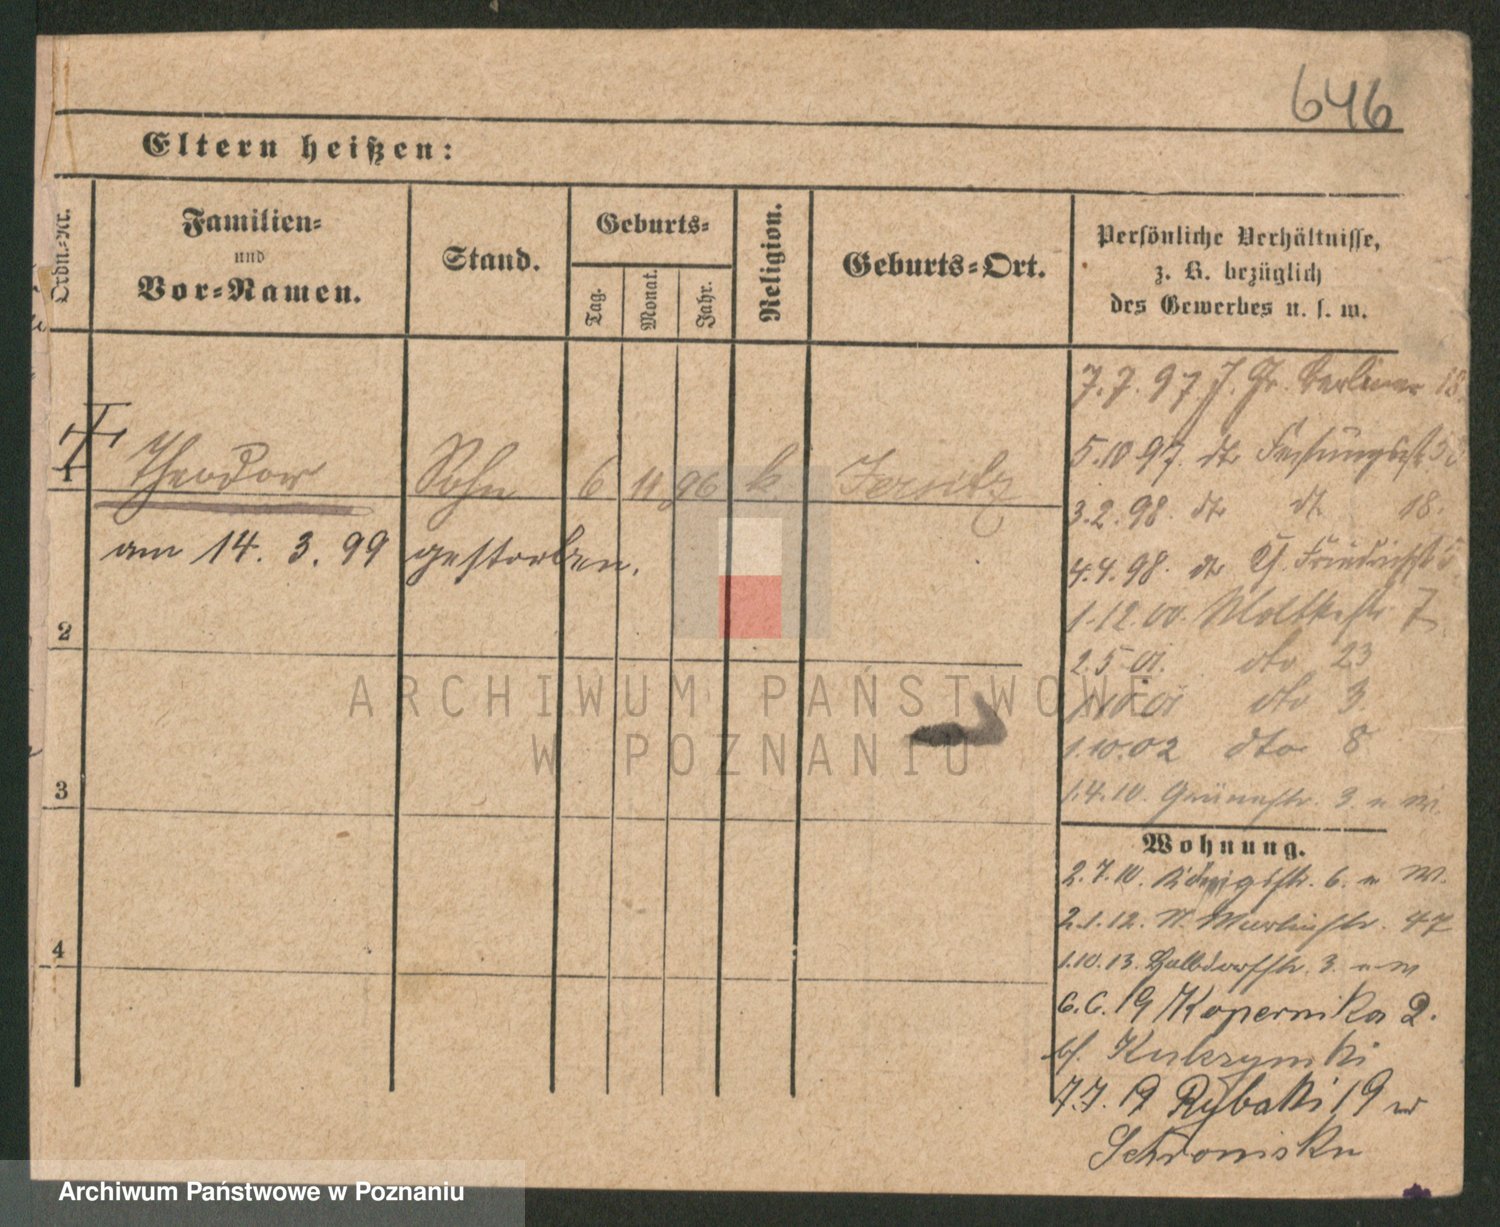 646
Eltern heißen:
Ordn.-Nr.
Familien-
und
Vor-Namen.
Stand.
Geburts-
Tag.
Monat.
Jahr.
Religion.
Geburts-Ort.
Persönliche Verhältnisse,
z. B. bezüglich
des Gewerbes u. s. w.
7.7.97. J. Gr. Berliner 18.
5.10.97. dto Festungsstr
3.2.98. dto dto 18.
4.4.98. dto Friedrichstr
1 Theodor Sohn 6 11 96 k. Jersitz
am 14. 3. 99 gestorben.
1.12.00. Moltkestr 7
2
2.5.01. dto 23
dto 3.
1.10.02 dto 8
3
1.4.10. Grünestr. 3. n W.
Wohnung.
2.7.10. Königsstr. 6. n W.
2.1.12. W. Martinstr. 47
4
1.10.13. Halbdorfstr. 3. n W
6.6.19 Kopernika 2.
bf.
7.7.19 Rybaki 19 w
Schronisku
ARCHIWUM PAŃSTWOWE
W POZNANIU
Archiwum Państwowe w Poznaniu